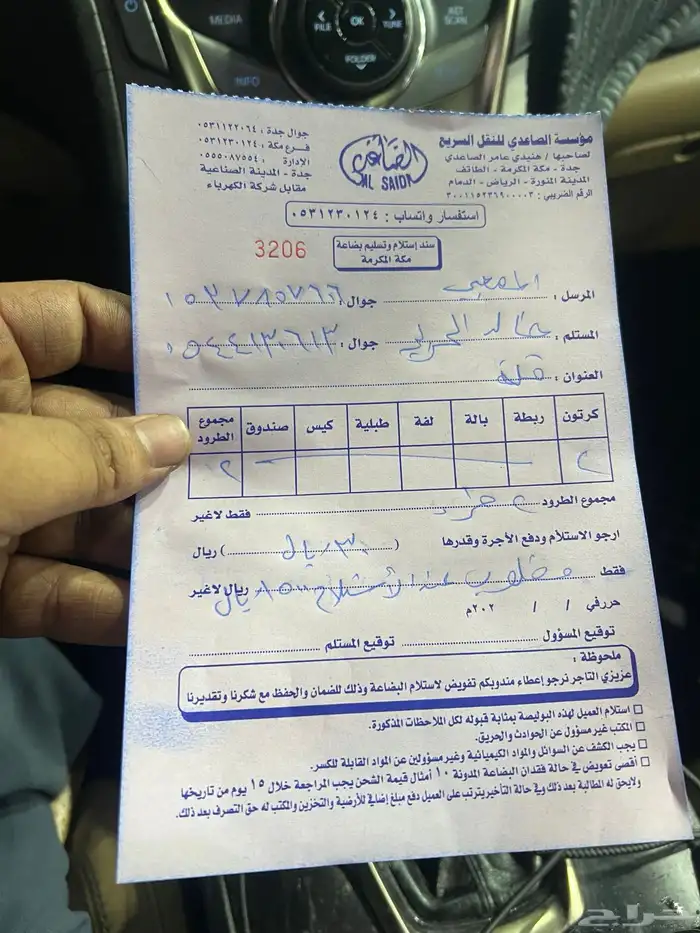 MEDIA
FILE
OK
TUNE
FOLDER
SCAN
INFO
مؤسسة الصاعدي للنقل السريع
لصاحبها / هنيدي عامر الصاعدي
جدة - مكة المكرمة - الطائف
المدينة المنورة - الرياض - الدمام
الرقم الضريبي : ٣٠٠١١٥٢٣١٩٠٠٠٠٣
الصاعدي
AL SAIDI
جوال جدة : ٠٥٣١١٢٢٠٦٤
فرع مكة : ٠٥٣١٢٣٠١٢٤
الإدارة : ٠٥٥٥٠٨٧٥٥٤
جدة - المدينة الصناعية
مقابل شركة الكهرباء
استفسار واتساب : ٠٥٣١٢٣٠١٢٤
3206
سند إستلام وتسليم بضاعة
مكة المكرمة
المرسل : جوال :
المستلم : خالد الحربي جوال : ٠٥٤٤١٣٠٦١٣
العنوان :
كرتون ربطة بالة لفة طبلية كيس صندوق مجموع الطرود
٢ ٢
مجموع الطرود ٢ فقط لاغير
ارجو الاستلام ودفع الأجرة وقدرها ( ٣٠ ريال ) ريال
فقط مطلوب عند الأستلام ١٥٠ ريال ريال لاغير
حرر في / / ٢٠٢م
توقيع المسؤول توقيع المستلم
ملحوظة :
عزيزي التاجر نرجو إعطاء مندوبكم تفويض لاستلام البضاعة وذلك للضمان والحفظ مع شكرنا وتقديرنا
استلام العميل لهذه البوليصة بمثابة قبوله لكل الملاحظات المذكورة.
المكتب غير مسؤول عن الحوادث والحريق.
يجب الكشف عن السوائل والمواد الكيميائية وغير مسؤولين عن المواد القابلة للكسر.
أقصى تعويض في حالة فقدان البضاعة المدونة ١٠ أمثال قيمة الشحن يجب المراجعة خلال ١٥ يوم من تاريخها
ولايحق له المطالبة بعد ذلك وفي حالة التأخير يترتب على العميل دفع مبلغ إضافي للأرضية والتخزين والمكتب له حق التصرف بعد ذلك.
حراج